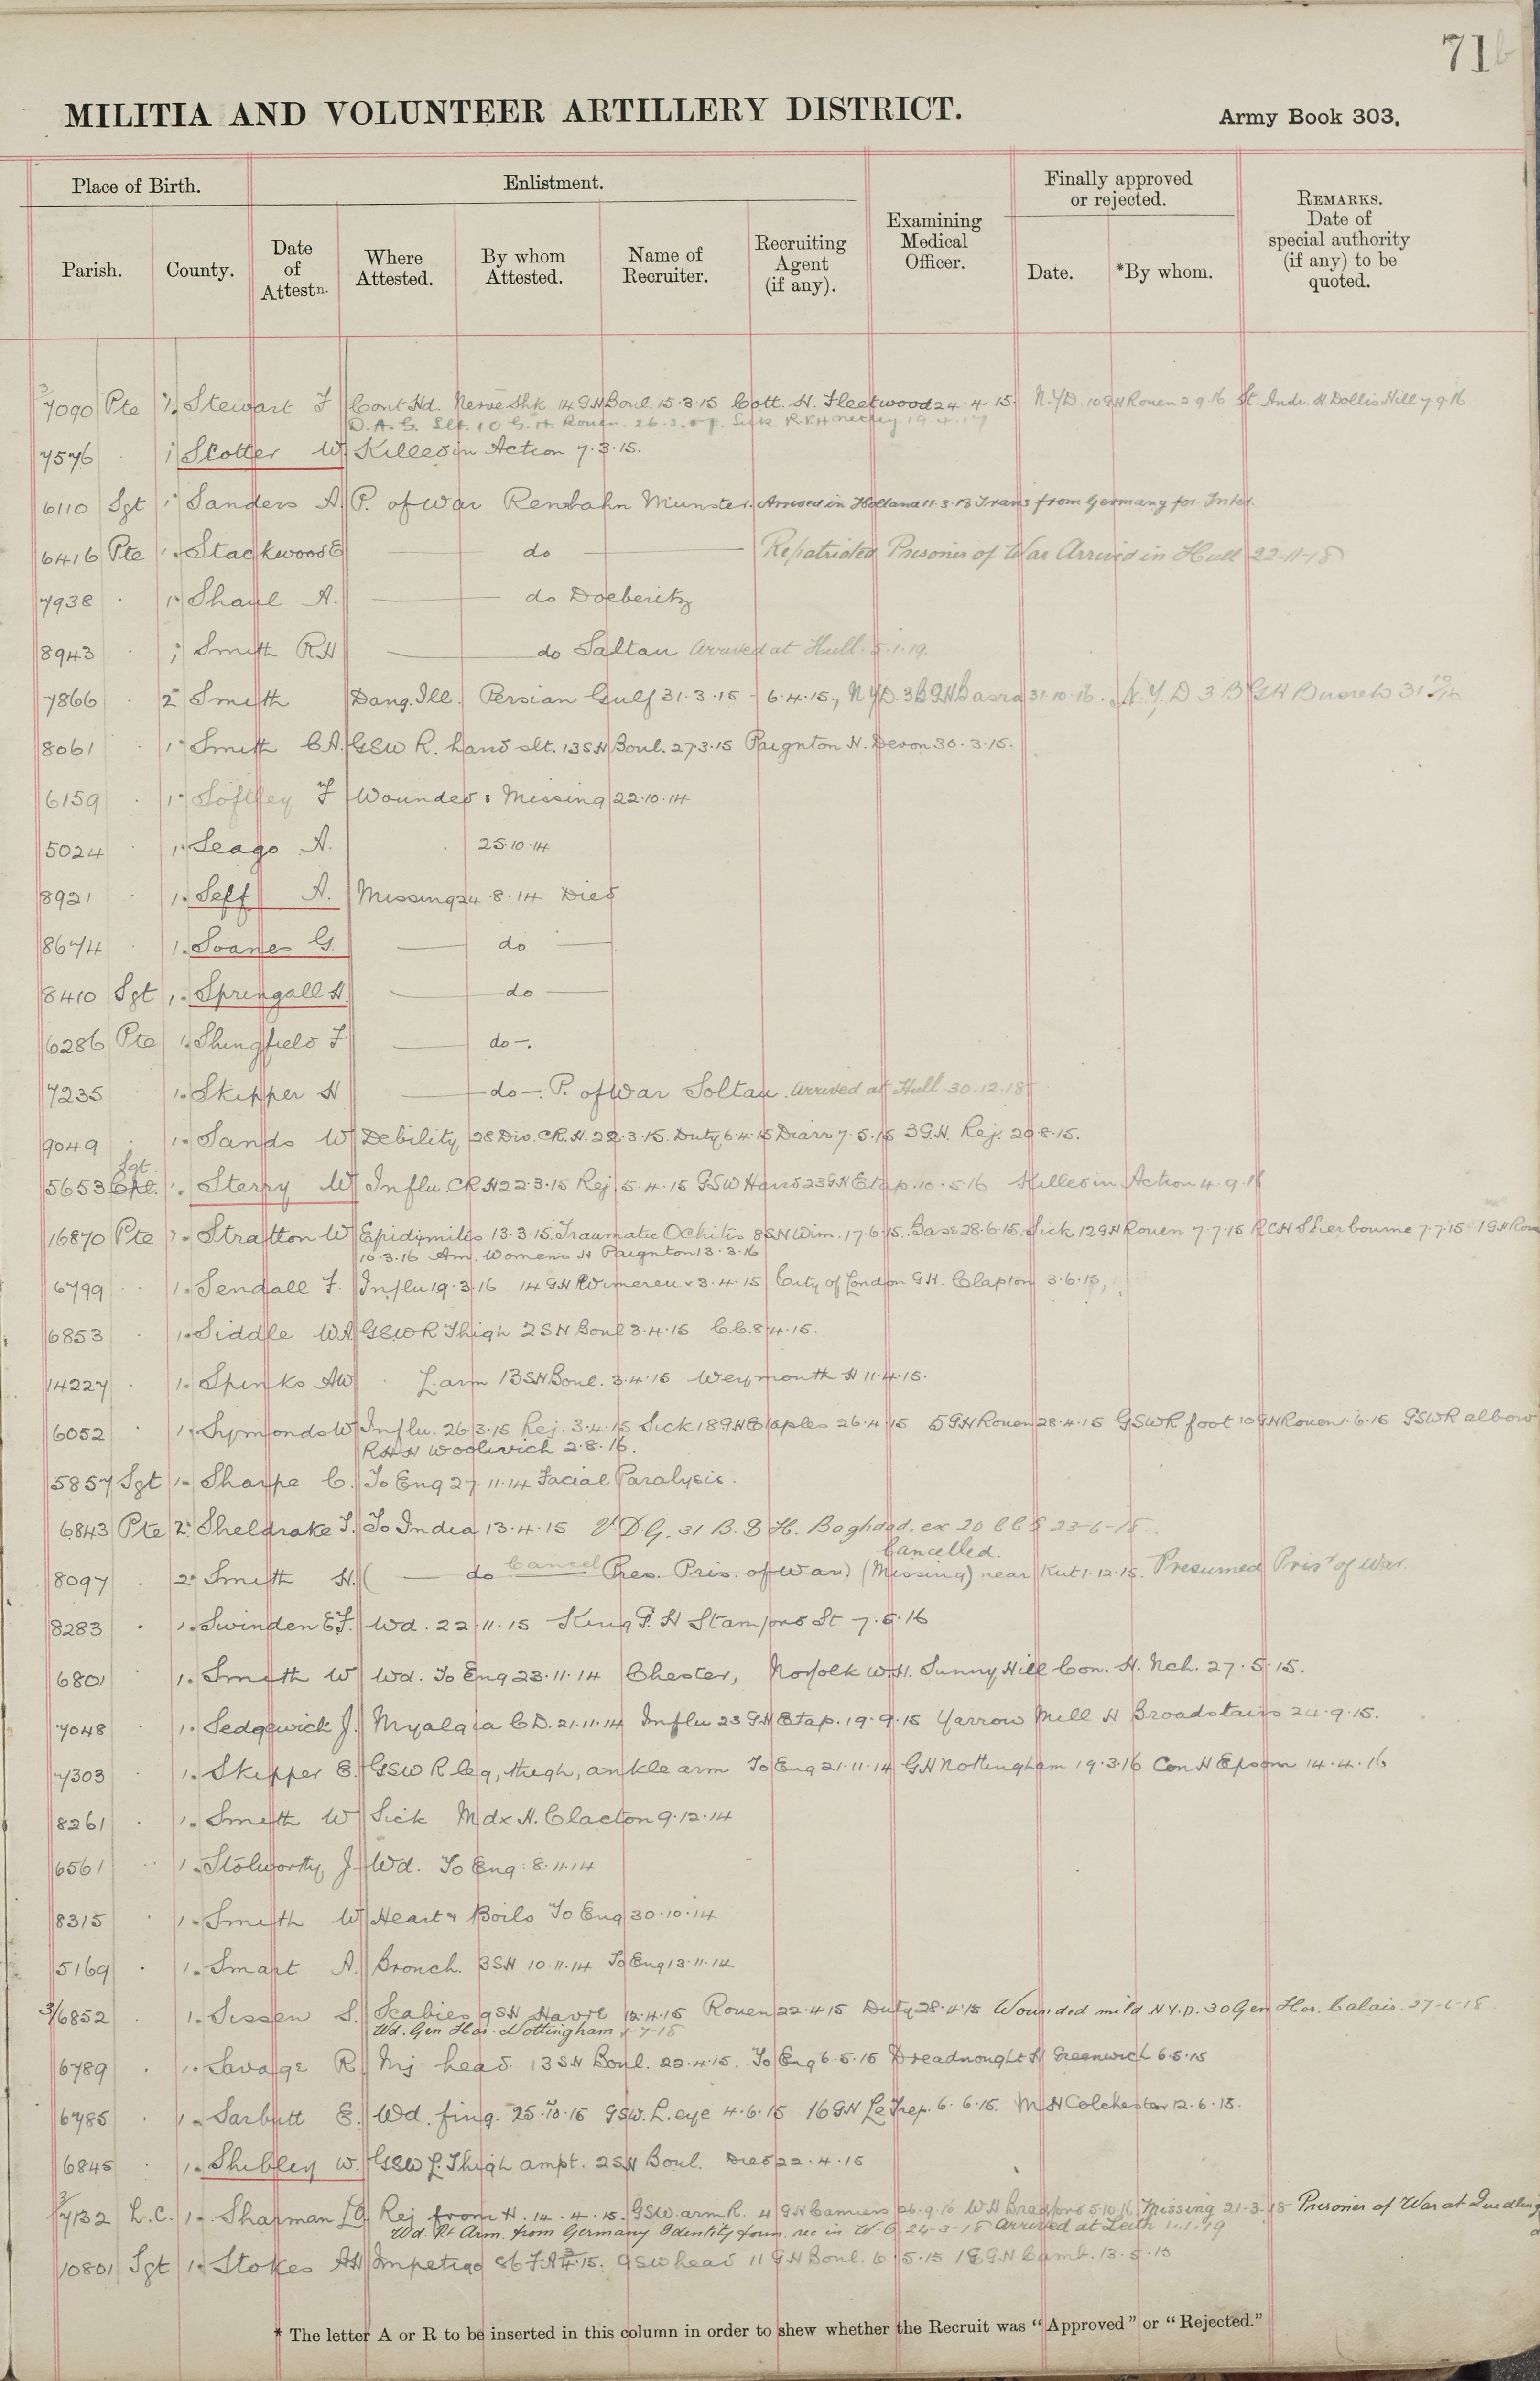 71b
MILITIA AND VOLUNTEER ARTILLERY DISTRICT.
Army Book 303.
Place of Birth. Enlistment. Examining Medical Officer. Finally approved or rejected. REMARKS. Date of special authority (if any) to be quoted.
Parish. County. Date of Attestn. Where Attested. By whom Attested. Name of Recruiter. Recruiting Agent (if any). Date. *By whom.
3/7090 Pte 1. Stewart J Cont Hd. Nerve Shk 14 GH Boul. 15.3.15 Cott. H. Fleetwood 24.4.15 N.Y.D. 10 GH Rouen 2.9.16 St. Andr. H Dollis Hill 7.9.16
D.A.G. Slt. 10 G.H. Rouen. 26.3.17. Sick R.V.H Netley 19.4.17
7576 · 1 Scotter W Killed in Action 7.3.15.
6110 Sgt 1 Sanders A P. of War Rennbahn Munster. Arrived in Holland 11.3.18 Trans from Germany for Inter.
6416 Pte 1. Stackwood E do Repatriated Prisoner of War Arrived in Hull 22-11-18
7938 · 1. Shaul A. do Doeberitz
8943 · 1 Smith RH do Saltau Arrived at Hull. 5.1.19.
7866 2 Smith Dang. Ill. Persian Gulf 31.3.15 - 6.4.15, N.Y.D. 3B GH Basra 31.10.16. N.Y.D 3 B GH Busreh 31 10/16
8061 · 1. Smith CA. GSW R. hand slt. 13 SH Boul. 27.3.15 Paignton H. Devon 30.3.15.
6159 · 1. Softley F Wounded & Missing 22.10.14
5024 1. Seago A. 25.10.14
8921 · 1. Self A. Missing 24.8.14 Died
8674 · 1. Soanes G. do
8410 Sgt 1. Springall H. do
6286 Pte 1. Shingfield F do -.
7235 · 1. Skipper H do -. P. of War Soltau. Arrived at Hull 30.12.18
9049 · 1. Sands W Debility 28 Div. CR.H. 22.3.15. Duty 6.4.15 Diarr 7.5.15 3 G.H. Rej. 29.8.15.
Sgt
5653 Cpl. 1. Sterry W Influ. CRH 22.3.15 Rej. 5.4.15 GSW Hand 23 GH Etap. 10.5.16 Killed in Action 4.9.16
16870 Pte 1. Stratton W Epidymitis 13.3.15. Traumatic Ochitis 8 SH Wim. 17.6.15. Base 28.6.15. Sick 12 GH Rouen 7.7.15 RCH Sherbourne 7.7.15 1 GH Rou
10.3.16 Am. Womens H Paignton 13.3.16
6799 · 1. Sendall F. Influ 19.3.16 14 GH Wimereux 3.4.15 City of London G.H. Clapton 3.6.15,
6853 · 1. Siddle WA GSW R Thigh 2 SH Boul 3.4.15 C.C. 8.4.15.
14227 · 1. Spinks AW · L. arm 13 SH Boul. 3.4.15 Weymouth H 11.4.15.
6052 1. Symonds W Influ. 26.3.15 Rej. 3.4.15 Sick 18 GH Etaples 26.4.15 5 GH Rouen 28.4.15 GSW R foot 10 GH Rouen 1.6.16 GSW R elbow
RHH Woolwich 2.8.16.
5857 Sgt 1. Sharpe C. To Eng 27.11.14 Facial Paralysis.
6843 Pte 2. Sheldrake J. To India 13.4.15 V.D.G. 31 B.S.H. Baghdad, ex 20 CCS 23-6-18.
Cancelled.
8097 · 2. Smith H. ( do Cancel Pres. Pris. of War) (Missing) near Kut 1.12.15. Presumed Pris' of War.
8283 · 1. Swinden EF. Wd. 22.11.15 King G. H Stamford St 7.5.16
6801 1. Smith W Wd. To Eng 23.11.14 Chester, Norfolk W.H. Sunny Hill Con. H. Nch. 27.5.15.
7048 · 1. Sedgewick J. Myalgia C.D. 21.11.14 Influ 23 GH Etap. 19.9.15 Yarrow Mill H Broadstairs 24.9.15.
7303 · 1. Skipper E. GSW R leg, thigh, ankle arm To Eng 21.11.14 GH Nottingham 19.3.16 Con H Epsom 14.4.16
8261 · 1. Smith W Sick Mdx H. Clacton 9.12.14
6561 · 1. Stolworthy J Wd. To Eng: 8.11.14
8315 · 1. Smith W Heart & Boils To Eng 30.10.14
5169 · 1. Smart A. Bronch. 3 SH 10.11.14 To Eng 13.11.14
3/6852 · 1. Sissen S. Scabies 9 SH Havre 12.4.15 Rouen 22.4.15 Duty 28.4.15 Wounded mild N.Y.D. 30 Gen Hos. Calais. 27-6-18
Wd. Gen Hos. Nottingham 1-7-18
6789 · 1. Savage R. Inj head 13 SH Boul. 22.4.15. To Eng 6.5.15 Dreadnought H Greenwich 6.5.15
6785 · 1. Sarbutt E. Wd. fing. 25.10.15 GSW. L. eye 4.6.15 16 GH Le Trep. 6.6.15. MH Colchester 12.6.15.
6845 · 1. Shibley W. GSW L. Thigh ampt. 2 SH Boul. Died 22.4.15
3/7132 L.C. 1. Sharman Rej. from H. 14.4.15. GSW. arm R. 4 GH Camiers 26.9.16 WH Bradford 5.10.16 Missing 21-3-18 Prisoner of War at Quedling
Wd. Rt Arm. from Germany Identity form rec in W.O. 24-3-18 Arrived at Leith 11.1.19
10801 Sgt 1. Stokes AH Impetigo 86 F.A 4.15. GSW head 11 GH Boul. 6.5.15 1 EGH Camb. 13.5.15
* The letter A or R to be inserted in this column in order to shew whether the Recruit was “Approved” or “Rejected.”